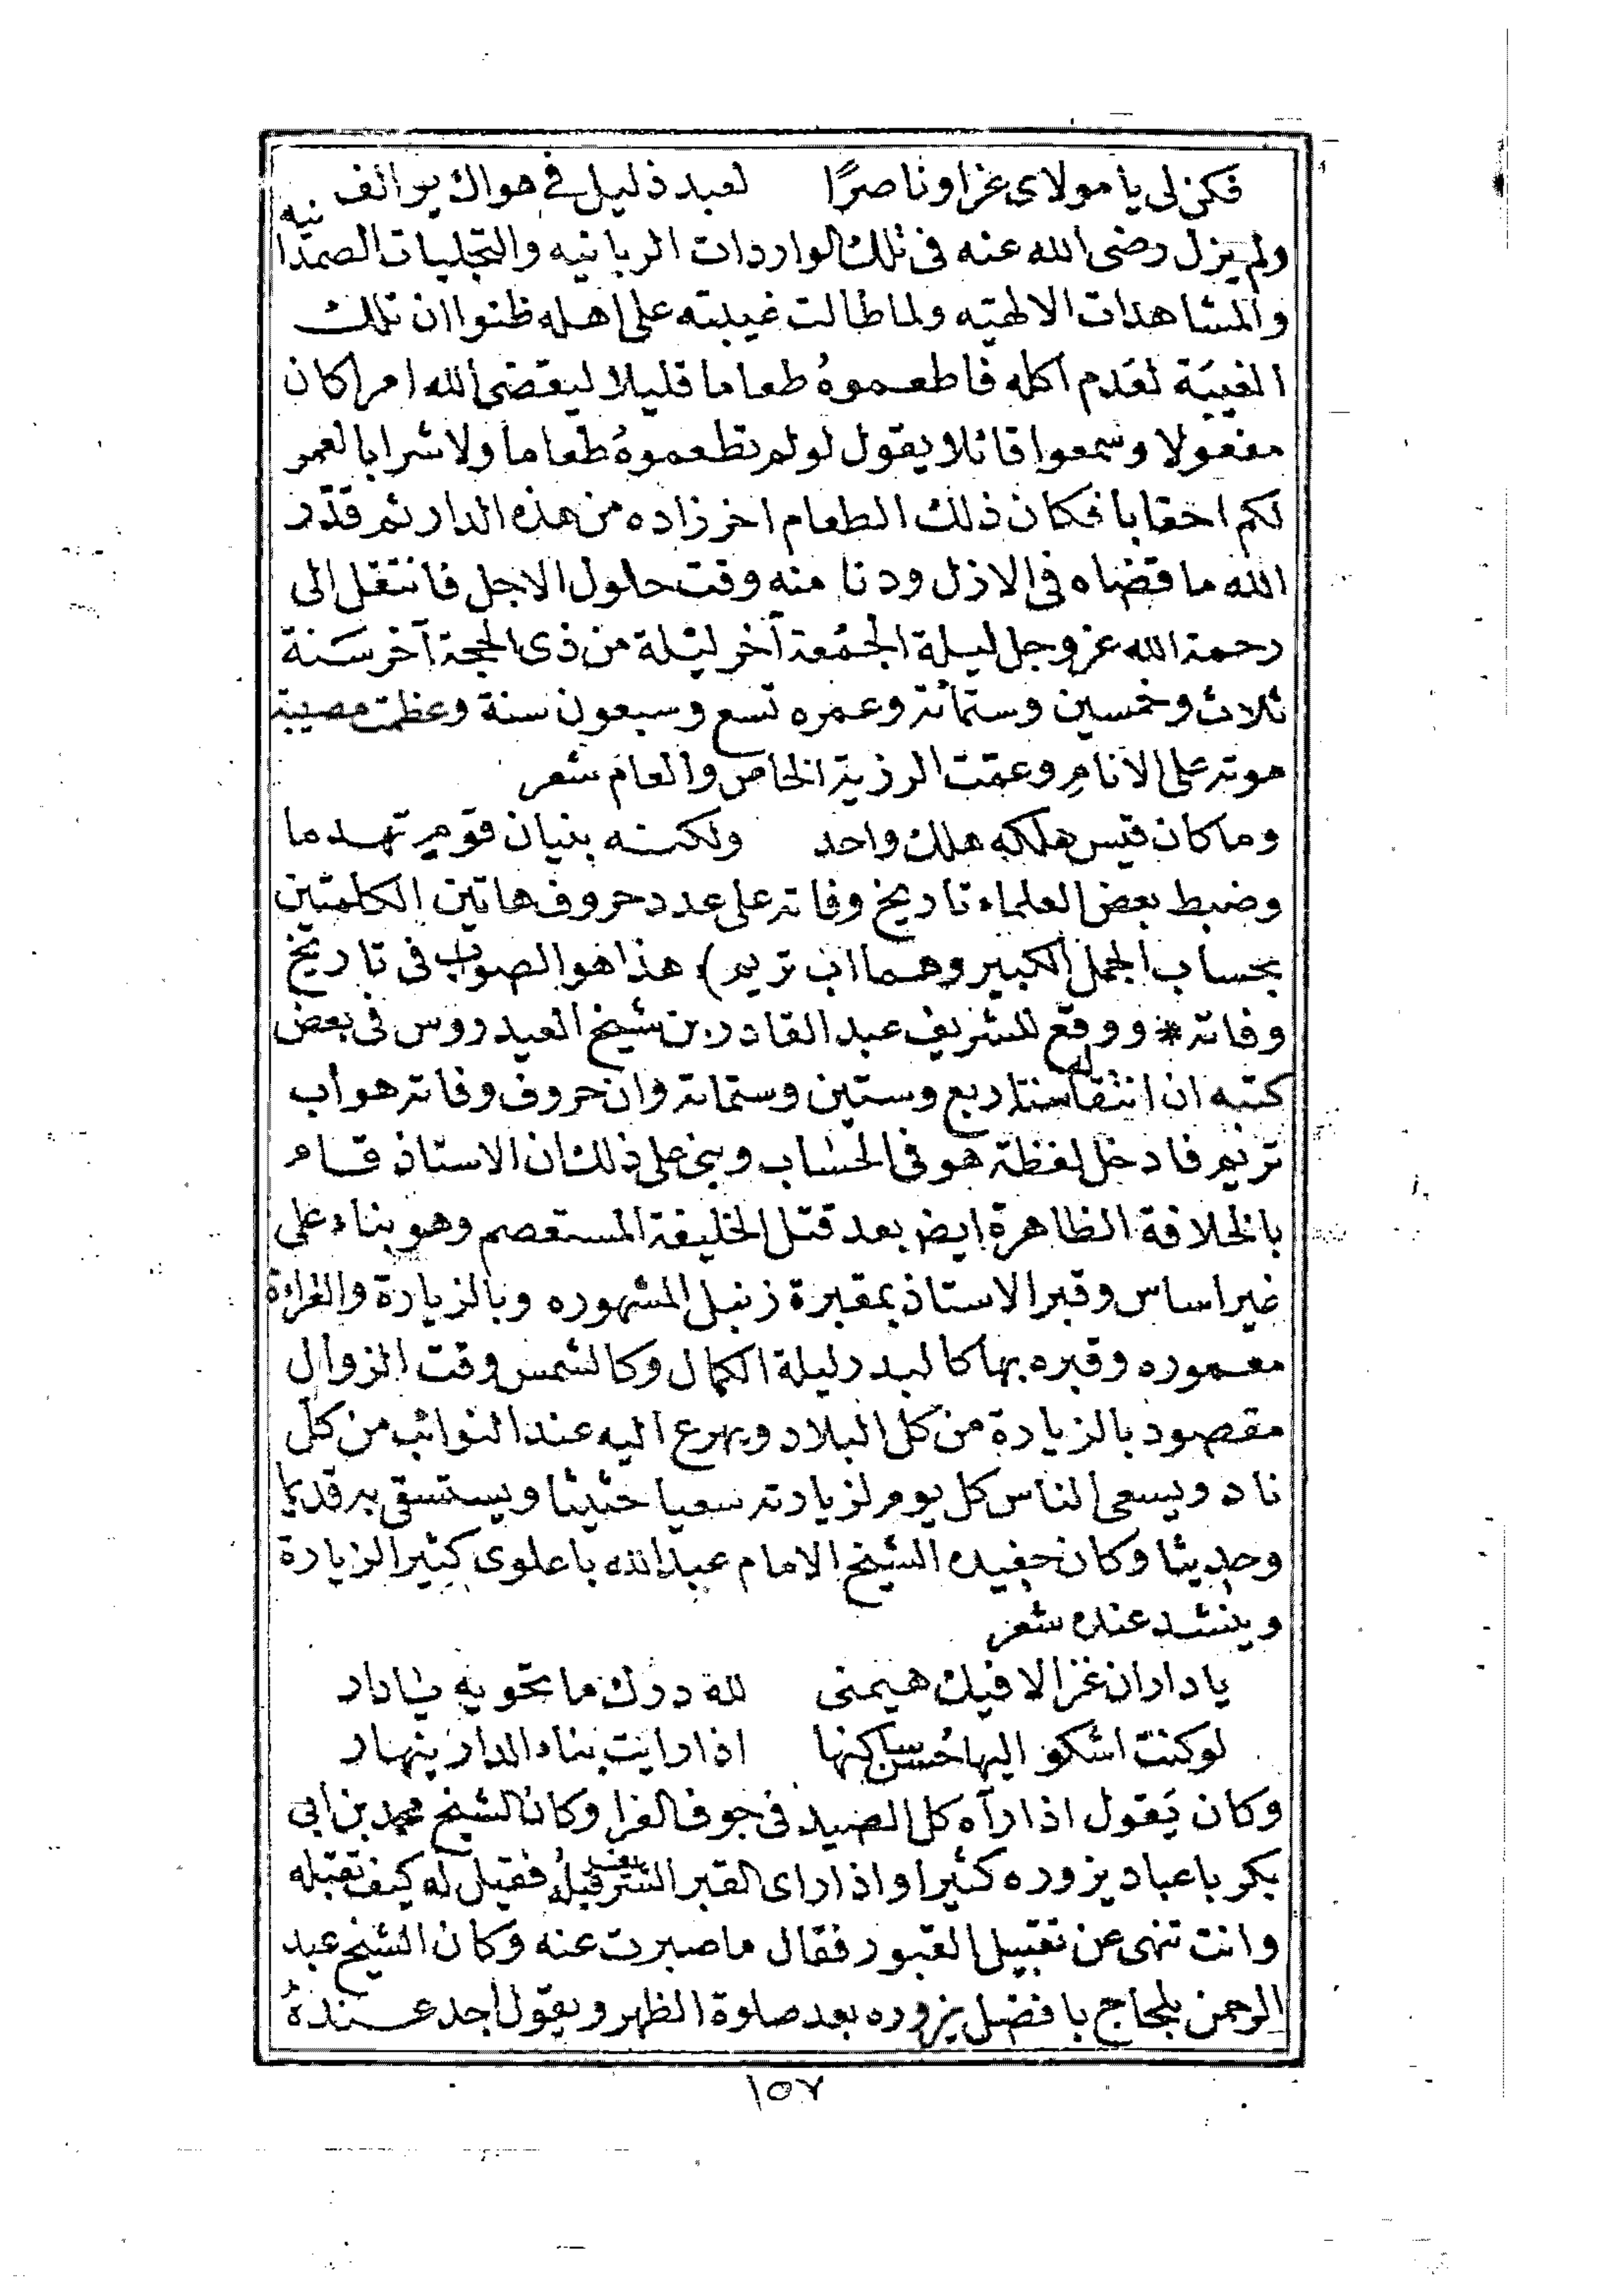 فكن لي يا مولاى عزا وناصرًا لعبد ذليل في هواك يرالف
ولم يزل رضى الله عنه فى تلك الواردات الربانيه والتجليات الصمدانيه
والمشاهدات الالهيه ولما طالت غيبته على اهله ظنوا ان تلك
الغيبَة لعَدم اكله فاطعموهُ طعاما قليلا ليقضى الله امرا كان
مفعولا وسمعوا قائلا يقول لو لم تطعموهُ طعاما ولا شرابا لعمر
لكم احقابا فكان ذلك الطعام اخر زاده من هذه الدار ثم قدّر
الله ما قضاه فى الازل ودنا منه وقت حلول الاجل فانتقل الى
رحمة الله عز وجل ليلة الجمُعة آخر ليْلة من ذى الحجة آخر سَنة
ثلاث وخمسين وستمائة وعمره تسع وسبعون سنة وعظمت مصيبة
موته على الانامِ وعمّت الرزية الخاص والعام شعر
وما كان قيس هلكه هلك واحد ولكنه بنيان قوم تهدما
وضبط بعض العلماء تاريخ وفاته على عدد حروف هاتين الكلمتين
بحساب الجمل الكبير وهما اب تريم) هذا هو الصواب فى تاريخ
وفاته * ووقع للشريف عبد القادر بن شيخ العيدروس فى بعض
كتبه ان انتقاله سنة اربع وستين وستمائة وان حروف وفاته هو اب
تريم فادخل لفظة هو فى الحساب وبنى على ذلك ان الاستاذ قام
بالخلافة الظاهرة ايض بعد قتل الخليفة المستعصم وهو بناء على
غير اساس وقبر الاستاذ بمقبرة زنبل المشهوره وبالزيارة والقراءة
معموره وقبره بها كالبدر ليلة الكمال وكالشمس وقت الزوال
مقصود بالزيارة من كل البلاد ويهرع اليه عند النوائب من كل
ناد ويسعى الناس كل يوم لزيارته سعيا حثيثا ويستسقى به قديما
وحديثا وكان حفيده الشيخ الامام عبد الله باعلوى كثير الزيارة
وينشد عنده شعر
يا دار ان غزالا فيك هيمنى لله درك ما تحويه يا دار
لو كنت اشكو اليها حُسن ساكنها اذا رايت بناء الدار ينهار
وكان يَقول اذا رآه كل الصيد فى جوف الفرا وكان الشيخ محمد بن ابى
بكر باعباد يزوره كثيرا واذا راى القبر الشريف قبلهُ فقيل له كيف تقبله
وانت تنهى عن تقبيل القبور فقال ما صبرت عنه وكان الشيخ عبد
الرحمن بلحاج بافضل يزوره بعد صلوة الظهر ويقول اجد عندهُ
١٥٧